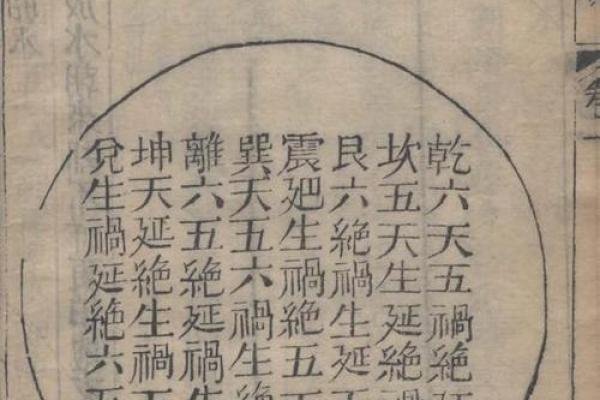 卷一
乾六天五禍絶
坎五天生延絶
艮六絶禍生延
震延生禍絶五
巽天五六禍生絶
離六五絶延禍生
坤天延絶生禍
兌生禍延絶六五